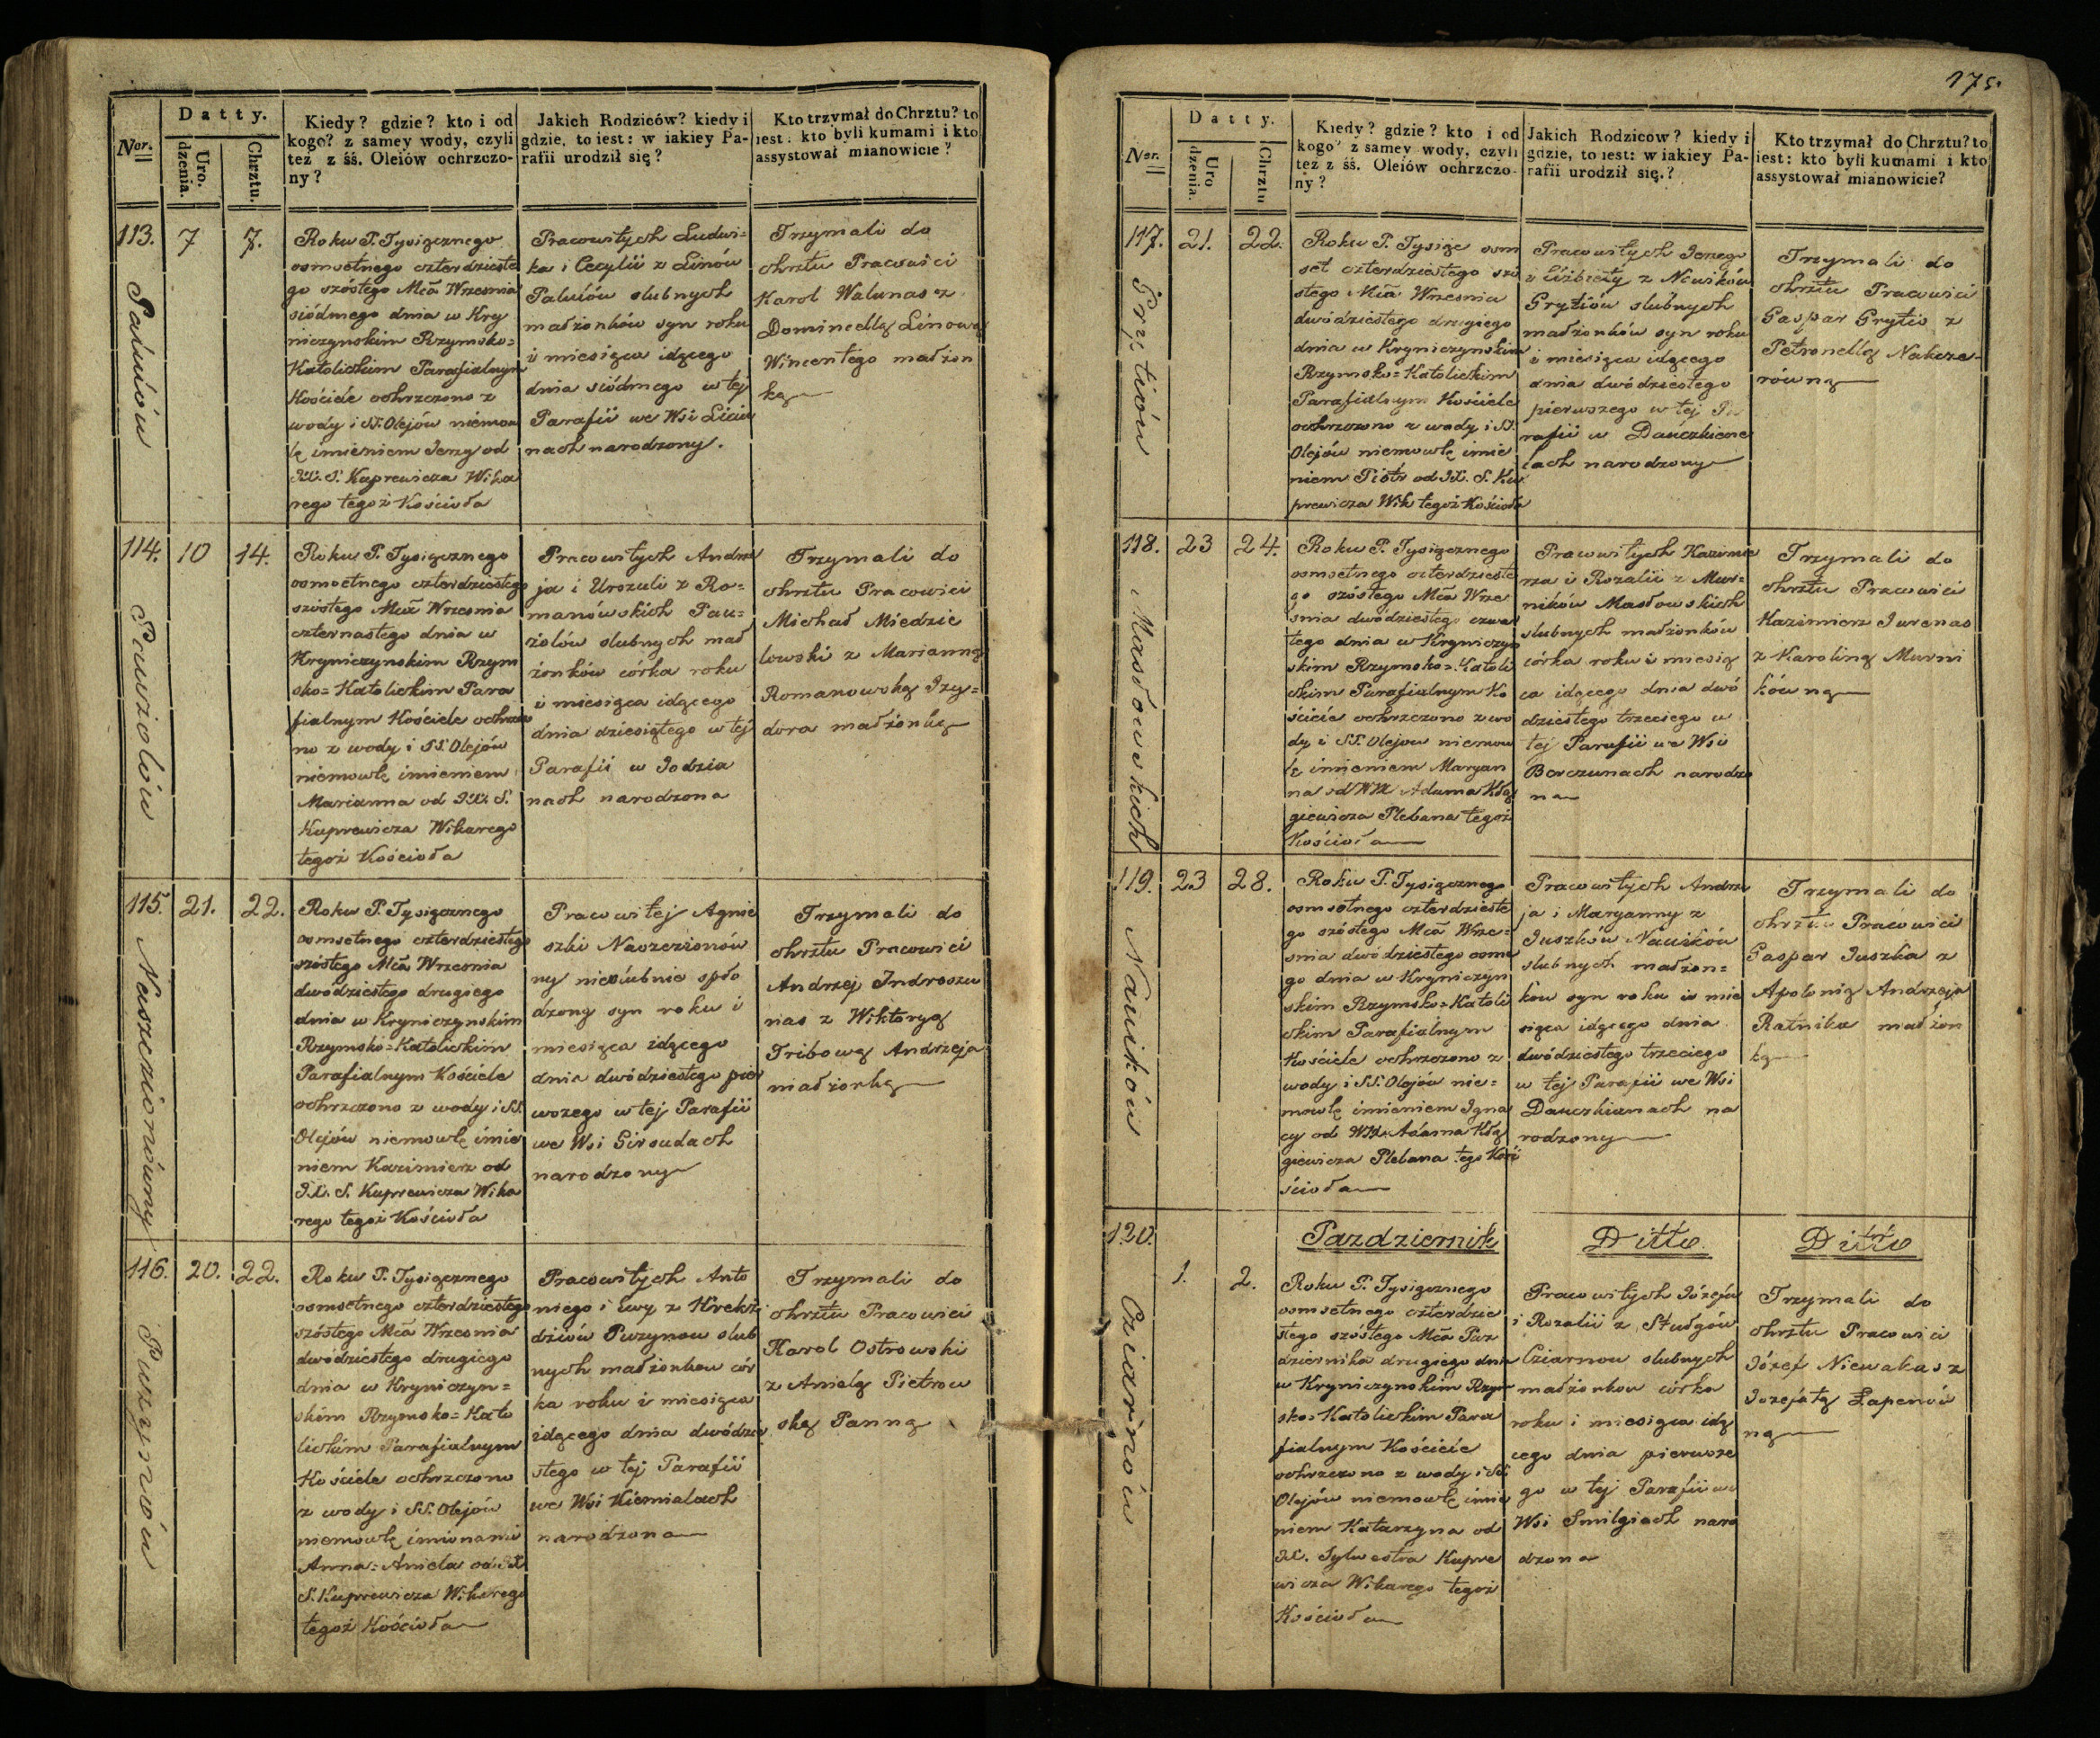 Datty.
Nor.
Uro.
dzenia.
Chrztu.
Kiedy? gdzie? kto i od
kogo? z samey wody, czyli
też z śś. Oleiów ochrzczo-
ny?
Jakich Rodziców? kiedy i
gdzie, to iest: w iakiey Pa-
rafii urodził się?
Kto trzymał do Chrztu? to
iest: kto byli kumami i kto
assystował mianowicie?
113.
7
7.
Roku P. Tysiącznego
osmsetnego czterdzieste
go szóstego Mca Wrzesnia
siódmego dnia w Kry
niczynskim Rzymsko=
Katolickim Parafialnym
Kościele ochrzczono z
wody i SS. Olejów niemow
lę imieniem Jerzy od
JX. S. Kuprewicza Wika
rego tegoż Kościoła
Pracowitych Ludwi=
ka i Cecylii z Linów
slubnych
małżonków syn roku
i miesiąca idącego
dnia siódmego w tej
Parafii we Wsi
nach narodzony.
Trzymali do
chrztu Pracowici
Karol Walunas z
Dominellą Linową
Wincentego małżon
ką
114.
10
14.
Pauzolów
Roku P. Tysiącznego
osmsetnego czterdziestego
szóstego Mca Wrzesnia
czternastego dnia w
Kryniczynskim Rzym
sko=Katolickim Para
fialnym Kościele ochrzczo
no z wody i SS. Olejów
niemowlę imieniem
Marianna od JX. S.
Kuprewicza Wikarego
tegoż Kościoła
Pracowitych Andrze
ja i Urszuli z Ro=
manówskich Pau=
zolów slubnych mał
żonków córka roku
i miesiąca idącego
dnia dziesiątego w tej
Parafii w Jodzia
nach narodzona
Trzymali do
chrztu Pracowici
Michał Miedzie
lewski z Marianną
Romanowską Izy=
dora małżonką
115.
21.
22.
Naszczionówny
Roku P. Tysiącznego
osmsetnego czterdziestego
szóstego Mca Wrzesnia
dwódziestego drugiego
dnia w Kryniczynskim
Rzymsko=Katolickim
Parafialnym Kościele
ochrzczono z wody i SS.
Olejów niemowlę imie
niem Kazimierz od
JX. S. Kuprewicza Wika
rego tegoż Kościoła
Pracowitej Agnie
szki Naszczionów
ny nieslubnie spło
dzony syn roku i
miesiąca idącego
dnia dwódziestego pier
wszego w tej Parafii
we Wsi Girsudach
narodzony
Trzymali do
chrztu Pracowici
Andrzej Indroszu
nas z Wiktoryą
Gribową Andrzeja
małżonką
116.
20.
22.
Puzynów
Roku P. Tysiącznego
osmsetnego czterdziestego
szóstego Mca Wrzesnia
dwódziestego drugiego
dnia w Kryniczyn=
skim Rzymsko=Kato
lickim Parafialnym
Kościele ochrzczono
z wody i SS. Olejów
niemowlę imionami
Anna=Aniela od JX
S. Kuprewicza Wikarego
tegoż Kościoła
Pracowitych Anto
niego i Ewy z
Puzynow slub
nych małżonkow cór
ka roku i miesiąca
idącego dnia dwódzie
stego w tej Parafii
we Wsi Kiemialach
narodzona
Trzymali do
chrztu Pracowici
Karol Ostrowski
z Anielą Pietrow
ską Panną
175.
Datty.
Nor.
Uro
dzenia.
Chrztu
Kiedy? gdzie? kto i od
kogo? z samey wody, czyli
też z śś. Oleiów ochrzczo-
ny?
Jakich Rodzicow? kiedy i
gdzie, to iest: w iakiey Pa-
rafii urodził się.?
Kto trzymał do Chrztu? to
iest: kto byli kumami i kto
assystował mianowicie?
117.
21.
22.
Grytiów
Roku P. Tysiąc osm
set czterdziestego szó
stego Mca Wrzesnia
dwódziestego drugiego
dnia w Kryniczynskim
Rzymsko=Katolickim
Parafialnym Kościele
ochrzczono z wody i SS.
Olejów niemowlę imie
niem Piotr od JX. S. Ku
prewicza Wik tegoż Kościoła
Pracowitych Jerzego
i Elżbiety z
Grytiów slubnych
małżonków syn roku
i miesiąca idącego
dnia dwódziestego
pierwszego w tej Pa
rafii w Dauczkiene
lach narodzony
Trzymali do
chrztu Pracowici
Gaspar Grytis z
Petronellą Nakcze=
równą
118.
23
24.
Masłowskich
Roku P. Tysiącznego
osmsetnego czterdzieste
go szóstego Mca Wrze
snia dwódziestego czwar
tego dnia w Kryniczyn
skim Rzymsko=Katoli
ckim Parafialnym Ko
ściele ochrzczono z wo
dy i SS. Olejow niemow
lę imieniem Maryan
na od WX Adama Kłą
giewicza Plebana tegoż
Kościoła
Pracowitych Kazimie
rza i Rozalii z Mur=
ników Masłowskich
slubnych małżonków
córka roku i miesią
ca idącego dnia dwó
dziestego trzeciego w
tej Parafii we Wsi
Borczunach narodzo
na
Trzymali do
chrztu Pracowici
Kazimierz Jurenas
z Karoliną Murni
kówną
119.
23
28.
Nauików
Roku P. Tysiącznego
osmsetnego czterdzieste
go szóstego Mca Wrze=
snia dwódziestego osme
go dnia w Kryniczyn
skim Rzymsko=Katoli
ckim Parafialnym
Kościele ochrzczono z
wody i SS. Olejów nie=
mowlę imieniem Igna
cy od WX. Adama Kłą
giewicza Plebana tego Ko
ścioła
Pracowitych Andrze
ja i Maryanny z
Juszków Nauików
slubnych małżon=
ków syn roku i mie
siąca idącego dnia
dwódziestego trzeciego
w tej Parafii we Wsi
Dauczkianach na
rodzony
Trzymali do
chrztu Pracowici
Gaspar Juszka z
Apolonią Andrzeja
Ratnika małżon
ką
120.
1.
2.
Cziarnów
Pazdziernik
Roku P. Tysiącznego
osmsetnego czterdzie
stego szóstego Mca Paz
dziernika drugiego dnia
w Kryniczynskim Rzym
sko=Katolickim Para
fialnym Kościele
ochrzczono z wody i SS.
Olejów niemowlę imie
niem Katarzyna od
JX. Sylwestra Kupre
wicza Wikarego tegoż
Kościoła
Ditto
Pracowitych Józefa
i Rozalii z Stułgów
Cziarnow slubnych
małżonkow córka
roku i miesiąca idą
cego dnia pierwsze
go w tej Parafii we
Wsi Smilgiach naro
dzona
Ditto
Trzymali do
chrztu Pracowici
Józef Niewakas z
Jozefatą Łapenów
ną